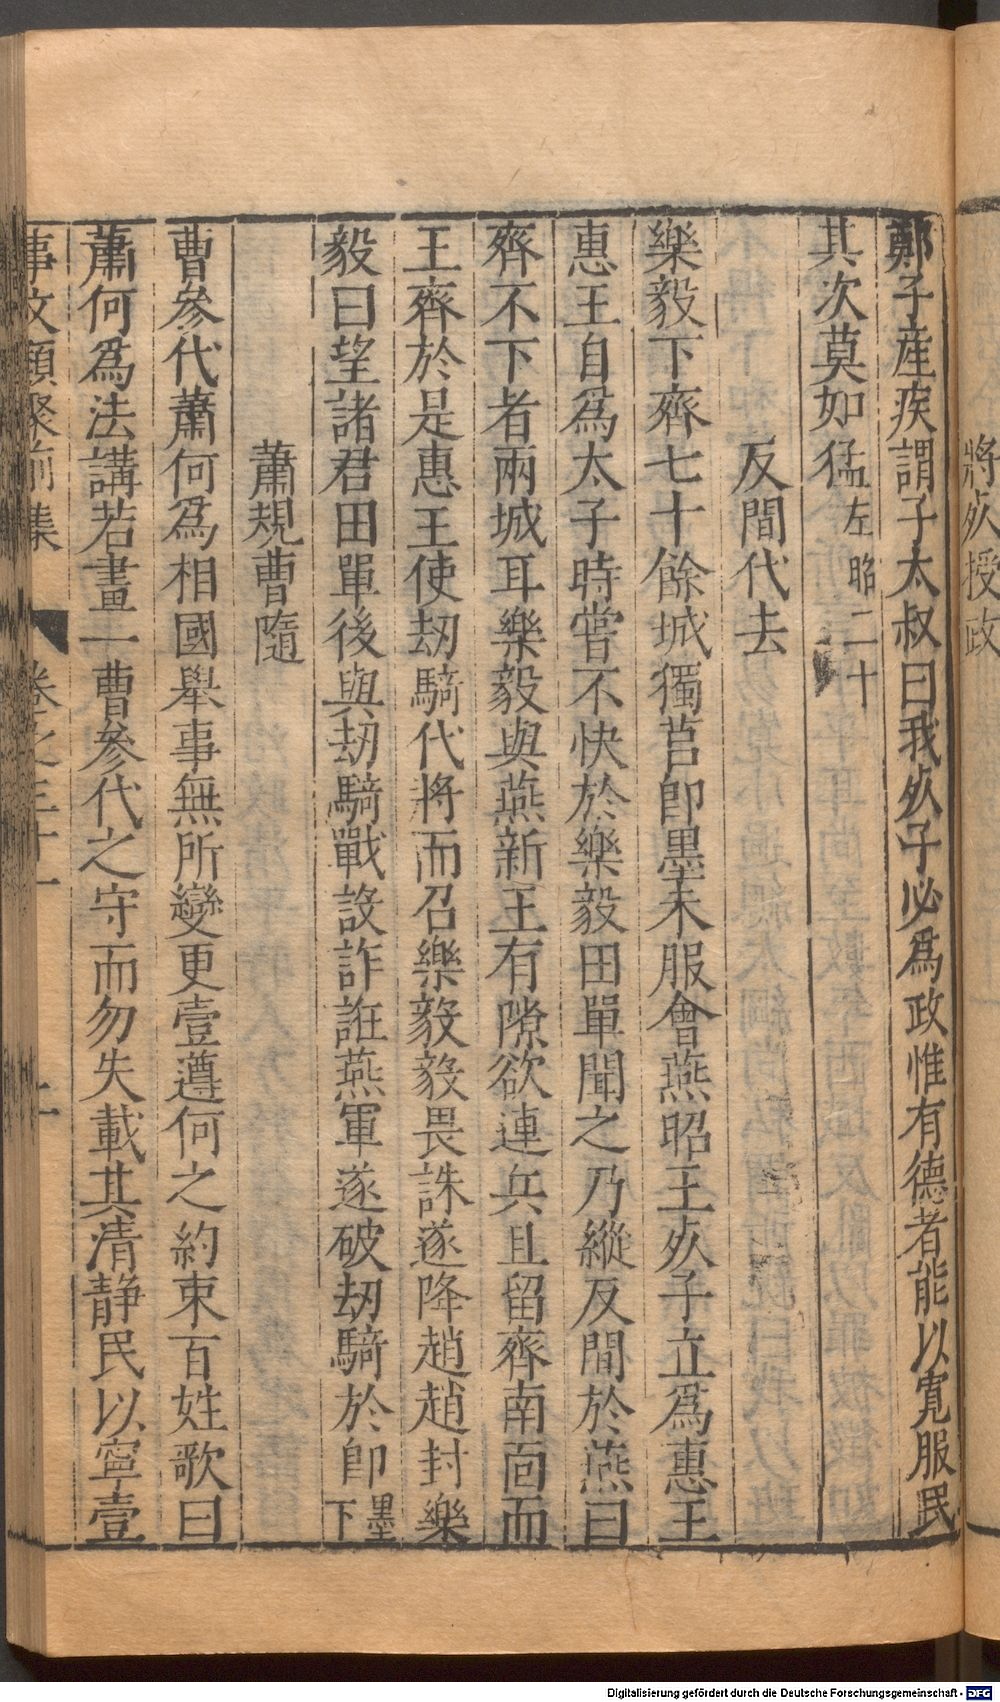 將死授政
鄭子產疾謂子太叔曰我死子必爲政惟有德者能以寬服民
其次莫如猛左昭二十
反間代去
樂毅下齊七十餘城獨莒卽墨未服會燕昭王死子立爲惠王
惠王自爲太子時嘗不快於樂毅田單聞之乃縱反間於燕曰
齊不下者兩城耳樂毅與燕新王有隙欲連兵且留齊南面而
王齊於是惠王使刼騎代將而召樂毅毅畏誅遂降趙趙封樂
毅曰望諸君田單後與刼騎戰設詐誑燕軍遂破刼騎於卽墨下
蕭規曹隨
曹參代蕭何爲相國舉事無所變更壹遵何之約束百姓歌曰
蕭何爲法講若畫一曹參代之守而勿失載其清静民以寧壹
事文類聚前集 卷之三十一 二
Digitalisierung gefördert durch die Deutsche Forschungsgemeinschaft - DFG